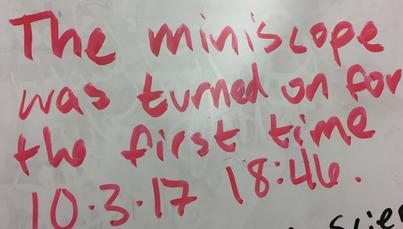 The miniscope
was turned on for
the first time
10.3.17 18:46.
Scien